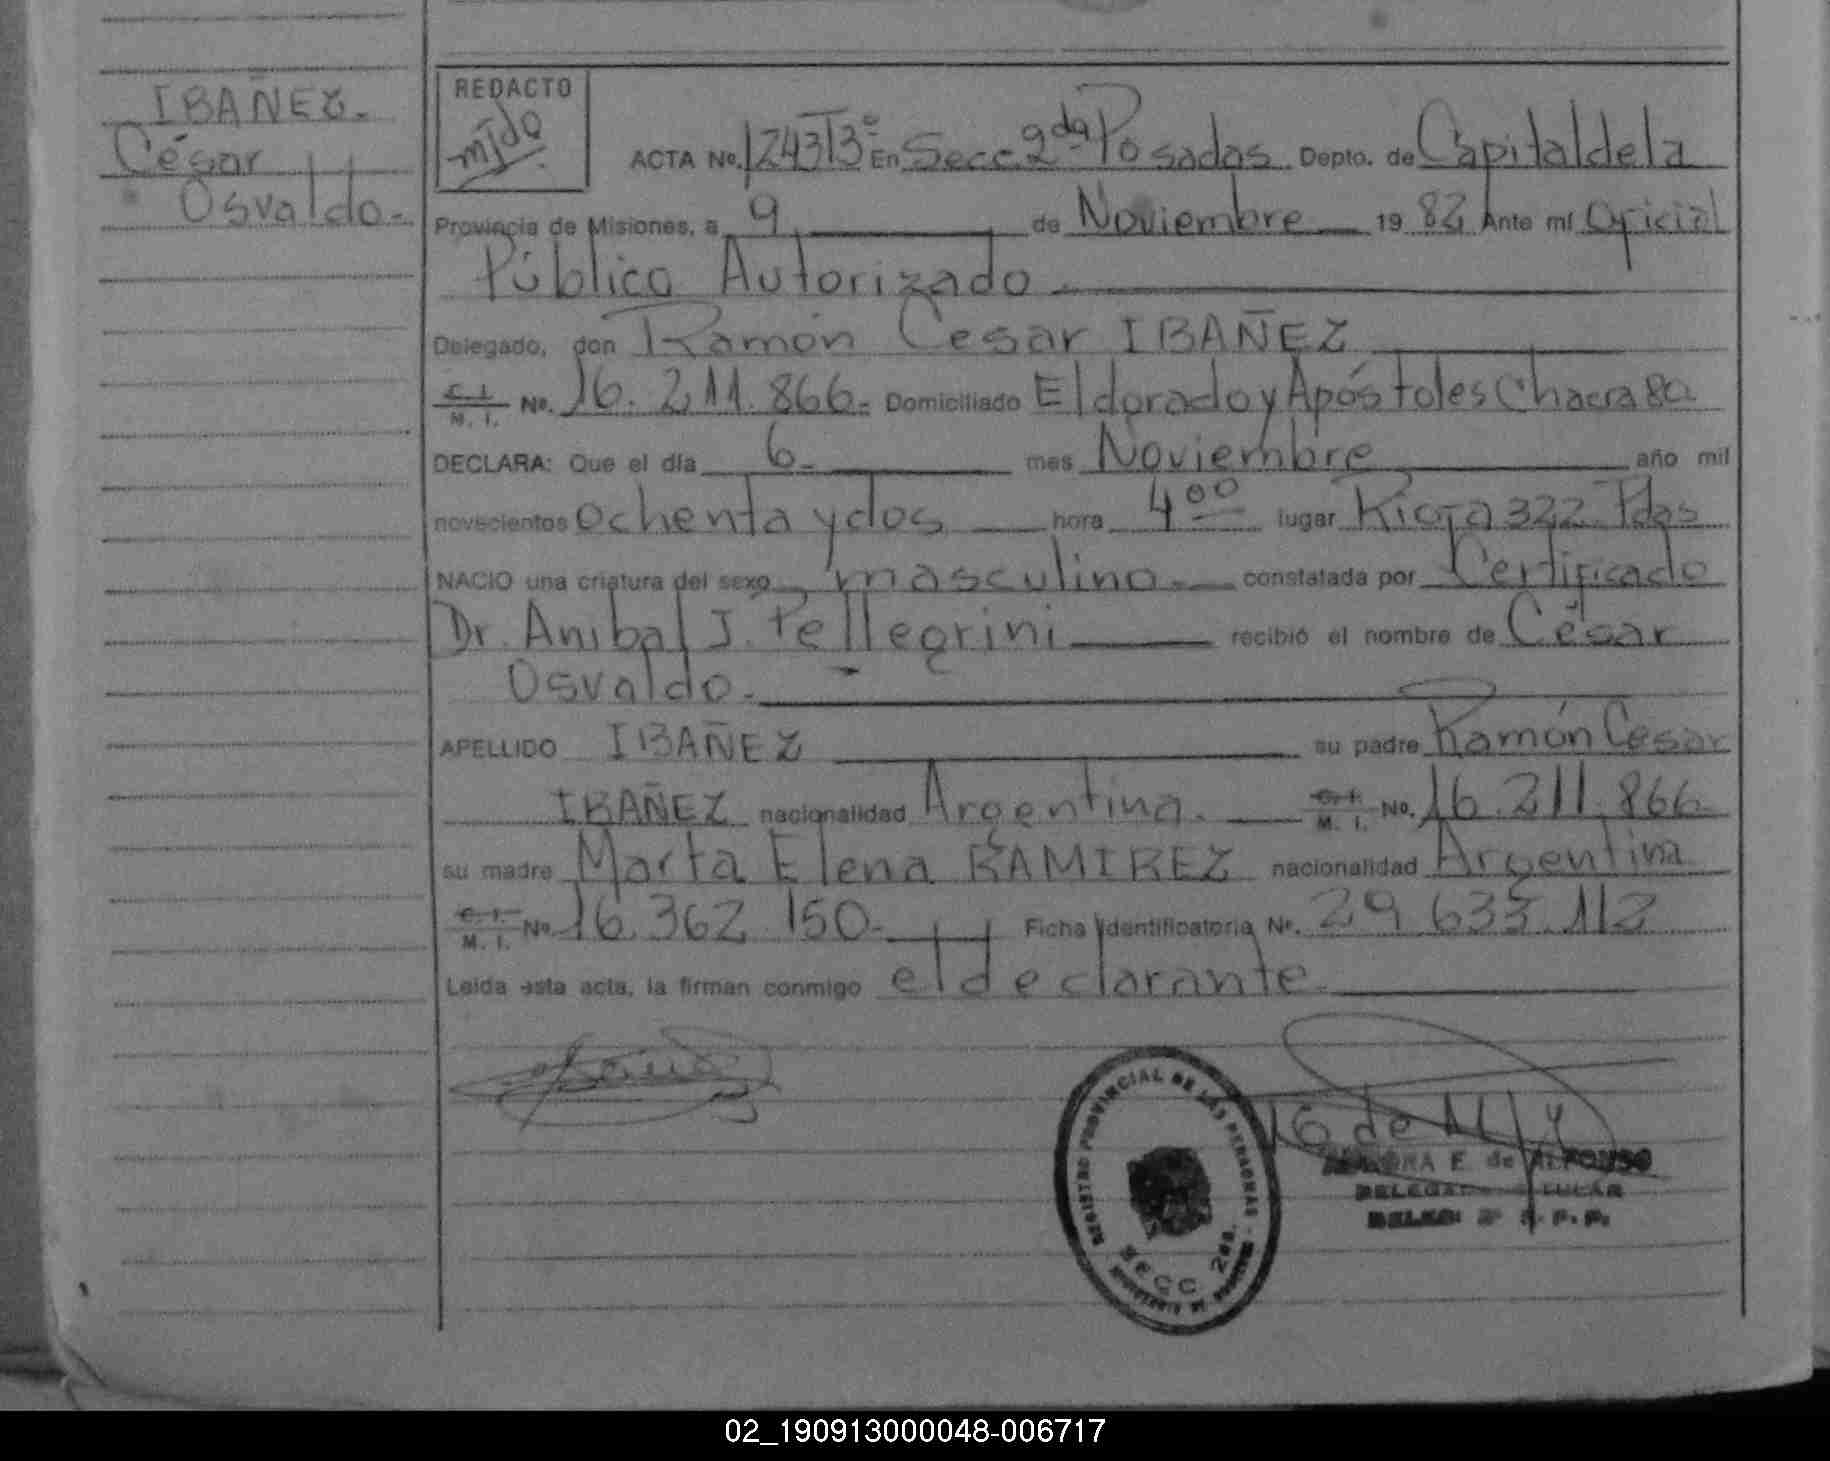 IBAÑEZ.
César
Osvaldo.-
REDACTO
ACTA No. 1243 T3º En Secc. 2da Posadas Depto. de Capital de la
Provincia de Misiones, a 9 de Noviembre 19 82 Ante mí Oficial
Público Autorizado.
Delegado, don Ramón Cesar IBAÑEZ
C. I.
M. I. No. 16.211.866.- Domiciliado Eldorado y Apóstoles Chacra 80
DECLARA: Que el día 6.- mes Noviembre año mil
novecientos ochenta y dos hora 4 00 lugar Rioja 322 Pdas
NACIO una criatura del sexo masculino.- constatada por Certificado
Dr. Anibal J. Pellegrini recibió el nombre de César
Osvaldo.-
APELLIDO IBAÑEZ su padre Ramón Cesar
IBAÑEZ nacionalidad Argentina. C. I.
M. I. No. 16.211.866.-
su madre Marta Elena RAMIREZ nacionalidad Argentina
C. I.
M. I. No. 16.362.150.- Ficha Identificatoria Nº. 29.633.112
Leída esta acta, la firman conmigo el declarante.
REGISTRO PROVINCIAL DE LAS PERSONAS
SECC. 2da.
E. de ALFONSO
02_190913000048-006717